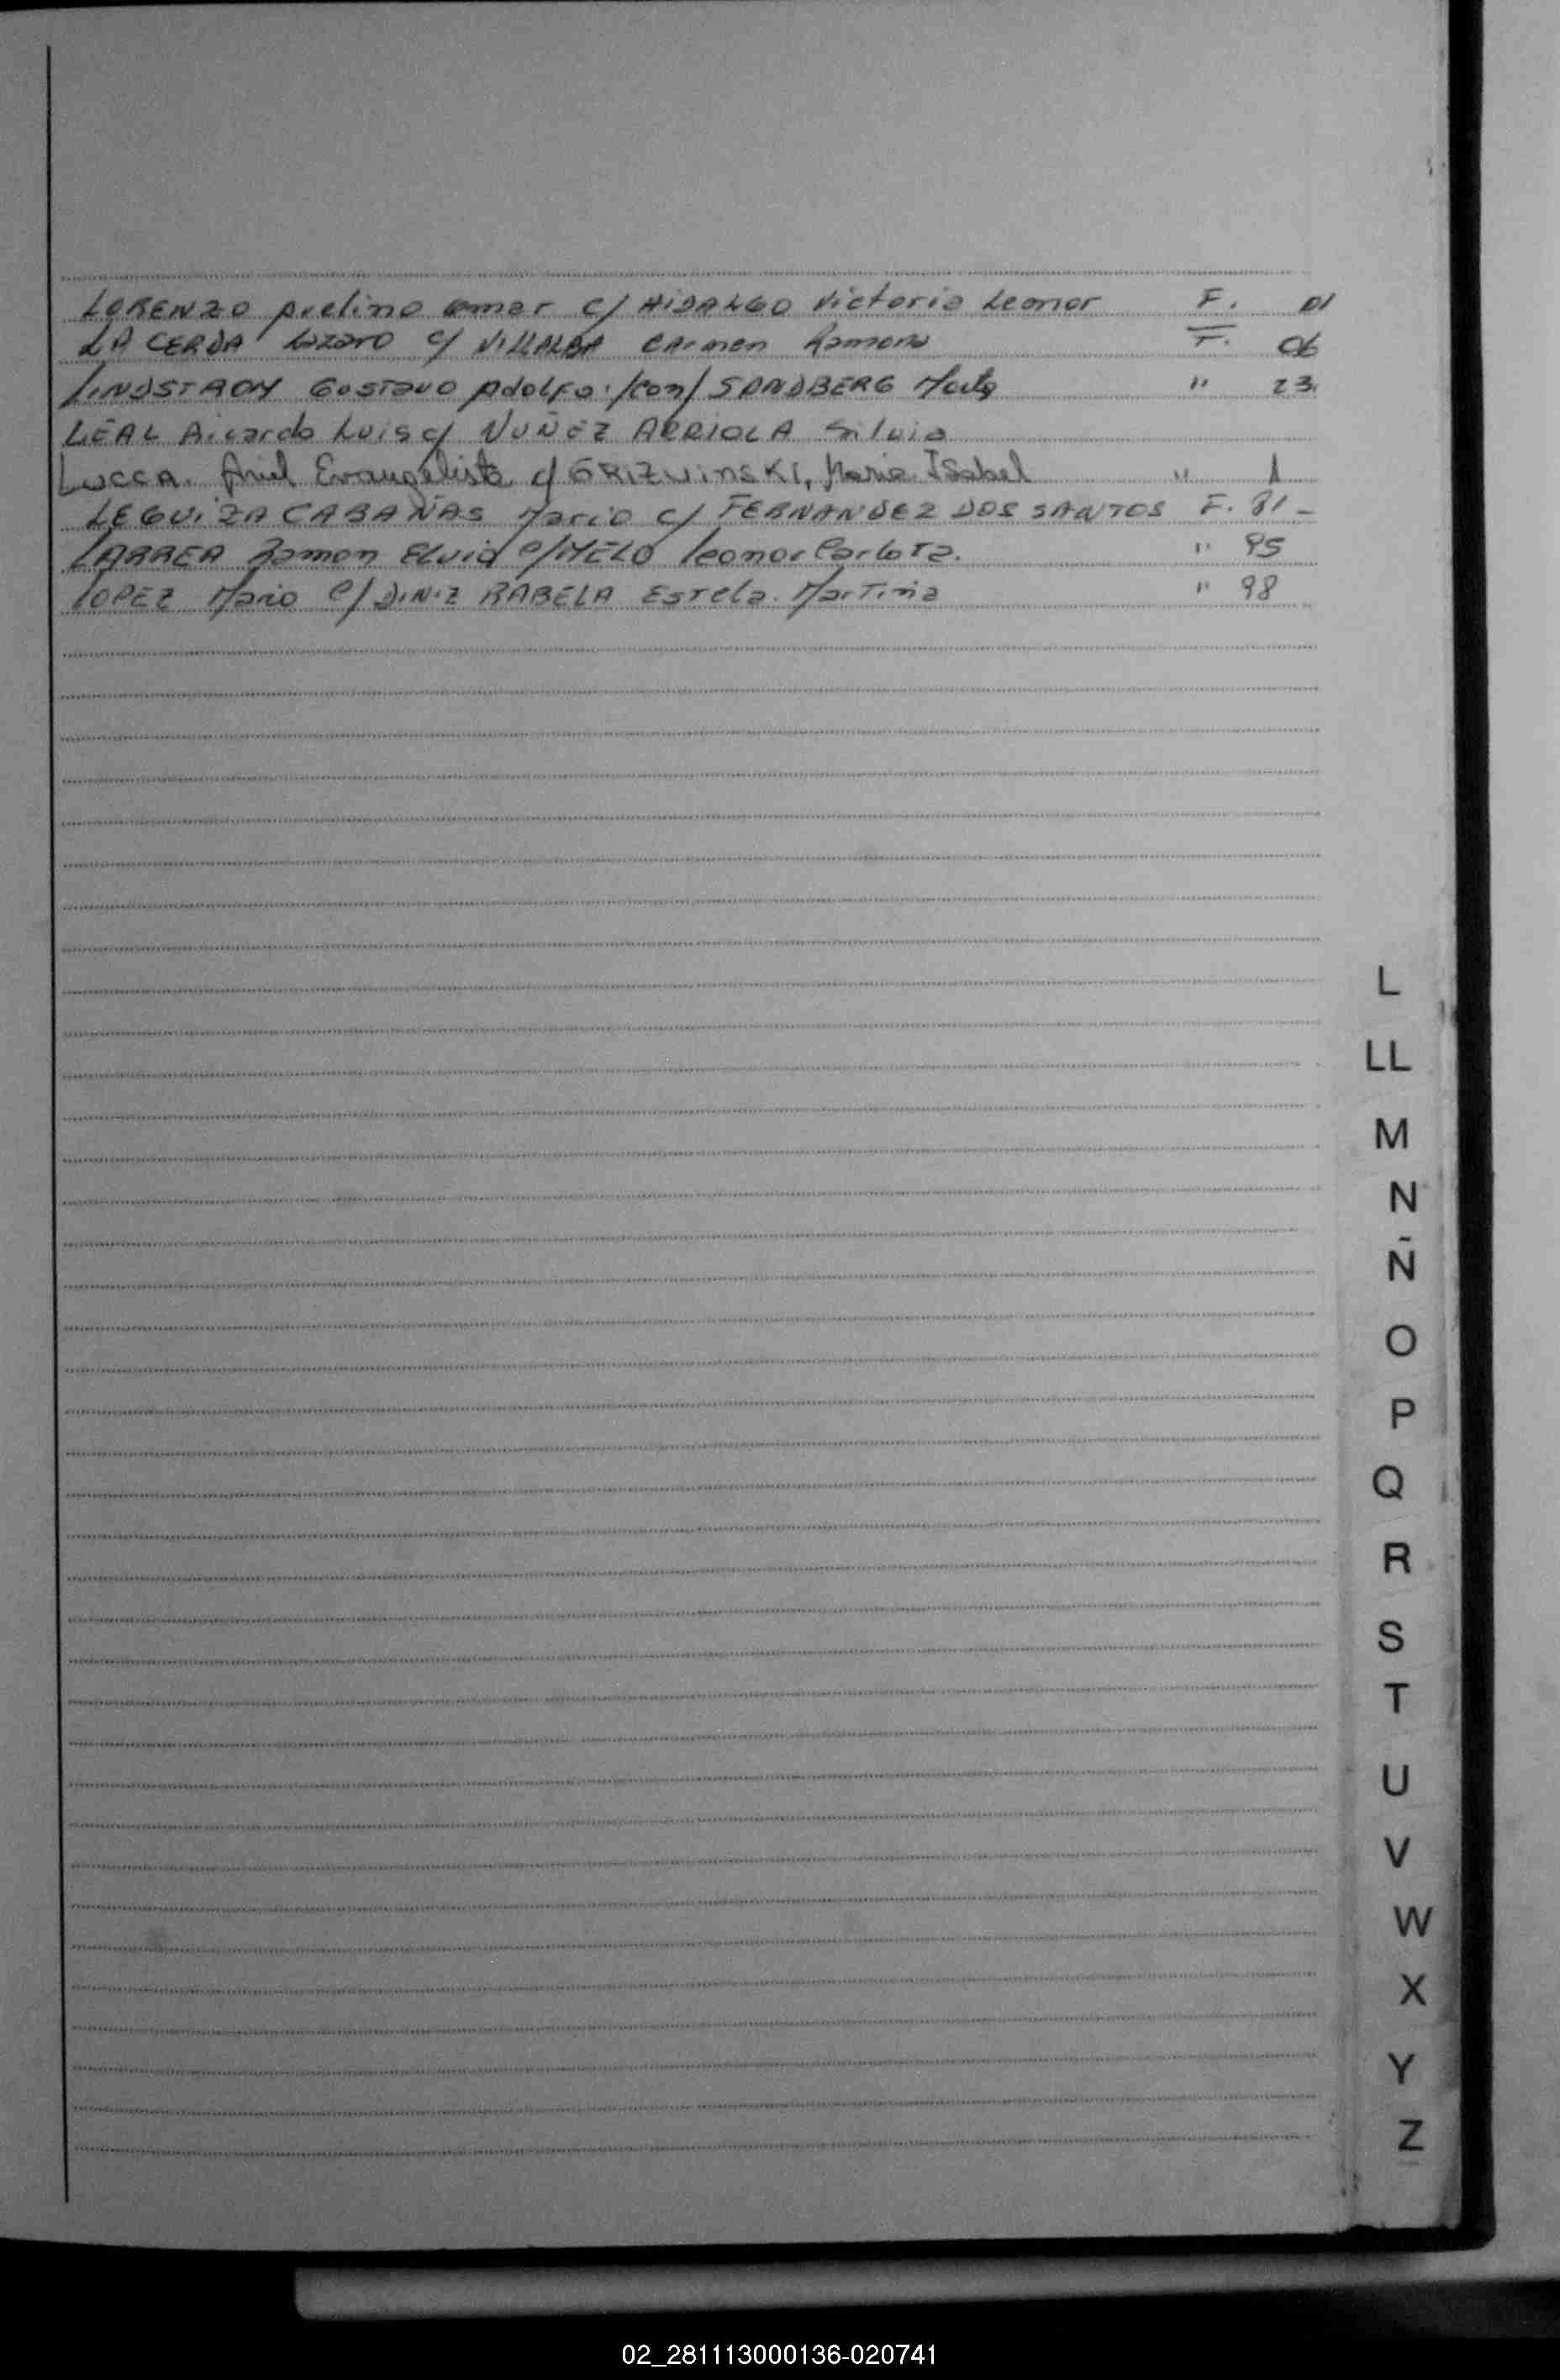 LORENZO Avelino Omar c/ HIDALGO Victoria Leonor F. 01
LA CERDA Lazaro c/ VILLALBA Carmen Ramona F. 06
LINDSTROM Gustavo Adolfo /con/ SANDBERG " 23
LEAL Ricardo Luis c/ NUÑEZ ARRIOLA Silvia
Lucca, Ariel Evangelista c/ GRIZWINSKI, Maria Isabel " 1
LEGUIZA CABAÑAS Mario c/ FERNANDEZ DOS SANTOS F. 81-
LARREA Ramon Elvio c/ MELO Leonor Carlota. " 95
LOPEZ Mario c/ DINIZ RABELA Estela Martina " 98
L
LL
M
N
Ñ
O
P
Q
R
S
T
U
V
W
X
Y
Z
02_281113000136-020741